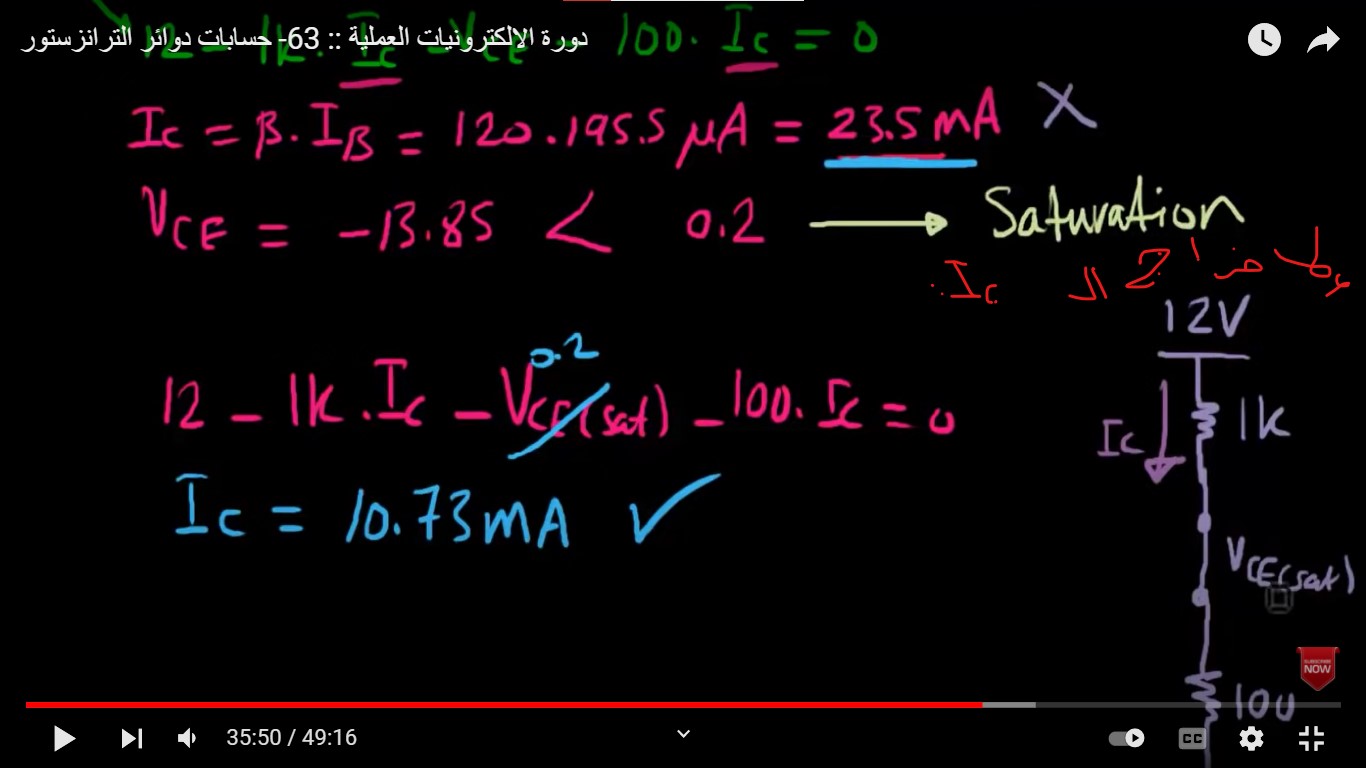 دورة الإلكترونيات العملية :: 63- حسابات دوائر الترانزستور
12 - 1k. Ic - VCE - 100. Ic = 0
Ic = β. IB = 120.195.5 μA = 23.5 mA X
VCE = -13.85 < 0.2 → Saturation
ال Ic
12V
0.2
12 - 1k. Ic - VCE(sat) - 100. Ic = 0
Ic 1k
Ic = 10.73mA ✓
VCE(sat)
SUBSCRIBE
NOW
100
35:50 / 49:16
CC